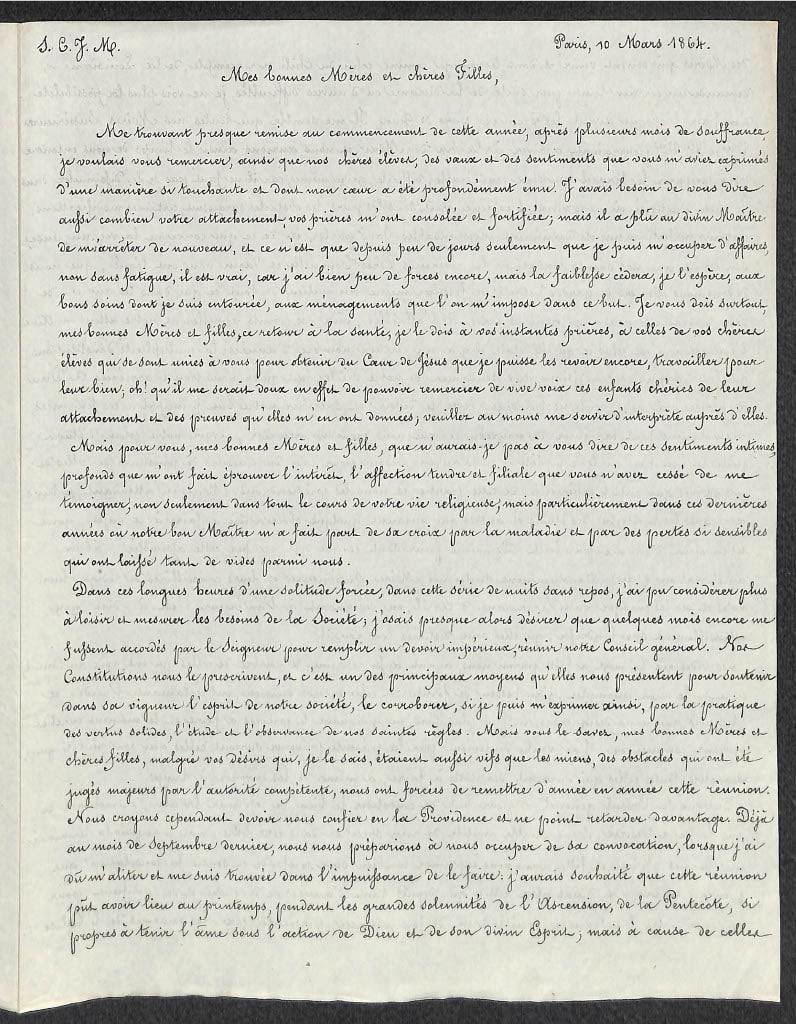 S. C. J. M.
Paris, 10 Mars 1864.
Mes bonnes Mères et chères Filles,
Me trouvant presque remise au commencement de cette année, après plusieurs mois de souffrance,
je voulais vous remercier, ainsi que nos chères élèves, des vœux et des sentiments que vous m'aviez exprimés
d'une manière si touchante et dont mon cœur a été profondément ému. J'avais besoin de vous dire
aussi combien votre attachement, vos prières m'ont consolée et fortifiée; mais il a plû au divin Maître
de m'arrêter de nouveau, et ce n'est que depuis peu de jours seulement que je puis m'occuper d'affaires,
non sans fatigue, il est vrai, car j'ai bien peu de forces encore, mais la faiblesse cèdera, je l'espère, aux
bons soins dont je suis entourée, aux ménagements que l'on m'impose dans ce but. Je vous dois surtout,
mes bonnes Mères et filles, ce retour à la santé, je le dois à vos instantes prières, à celles de vos chères
élèves qui se sont unies à vous pour obtenir du Cœur de Jésus que je puisse les revoir encore, travailler pour
leur bien; oh! qu'il me serait doux en effet de pouvoir remercier de vive voix ces enfants chéries de leur
attachement et des preuves qu'elles m'en ont données; veuillez au moins me servir d'interprète auprès d'elles.
Mais pour vous, mes bonnes Mères et filles, que n'aurais-je pas à vous dire de ces sentiments intimes,
profonds que m'ont fait éprouver l'intérêt, l'affection tendre et filiale que vous n'avez cessé de me
témoigner, non seulement dans tout le cours de votre vie religieuse, mais particulièrement dans ces dernières
années où notre bon Maître m'a fait part de sa croix par la maladie et par des pertes si sensibles
qui ont laissé tant de vides parmi nous.
Dans ces longues heures d'une solitude forcée, dans cette série de nuits sans repos, j'ai pu considérer plus
à loisir et mesurer les besoins de la Société; j'osais presque alors désirer que quelques mois encore me
fussent accordés par le Seigneur pour remplir un devoir impérieux, réunir notre Conseil général. Nos
Constitutions nous le prescrivent, et c'est un des principaux moyens qu'elles nous présentent pour soutenir
dans sa vigueur l'esprit de notre société, le corroborer, si je puis m'exprimer ainsi, par la pratique
des vertus solides, l'étude et l'observance de nos saintes règles. Mais vous le savez, mes bonnes Mères et
chères filles, malgré vos désirs qui, je le sais, étaient aussi vifs que les miens, des obstacles qui ont été
jugés majeurs par l'autorité compétente, nous ont forcées de remettre d'année en année cette réunion.
Nous croyons cependant devoir nous confier en la Providence et ne point retarder davantage. Déjà
au mois de Septembre dernier, nous nous préparions à nous occuper de sa convocation, lorsque j'ai
dû m'aliter et me suis trouvée dans l'impuissance de le faire: j'aurais souhaité que cette réunion
pût avoir lieu au printemps, pendant les grandes solennités de l'Ascension, de la Pentecôte, si
propres à tenir l'âme sous l'action de Dieu et de son divin Esprit; mais à cause de celles